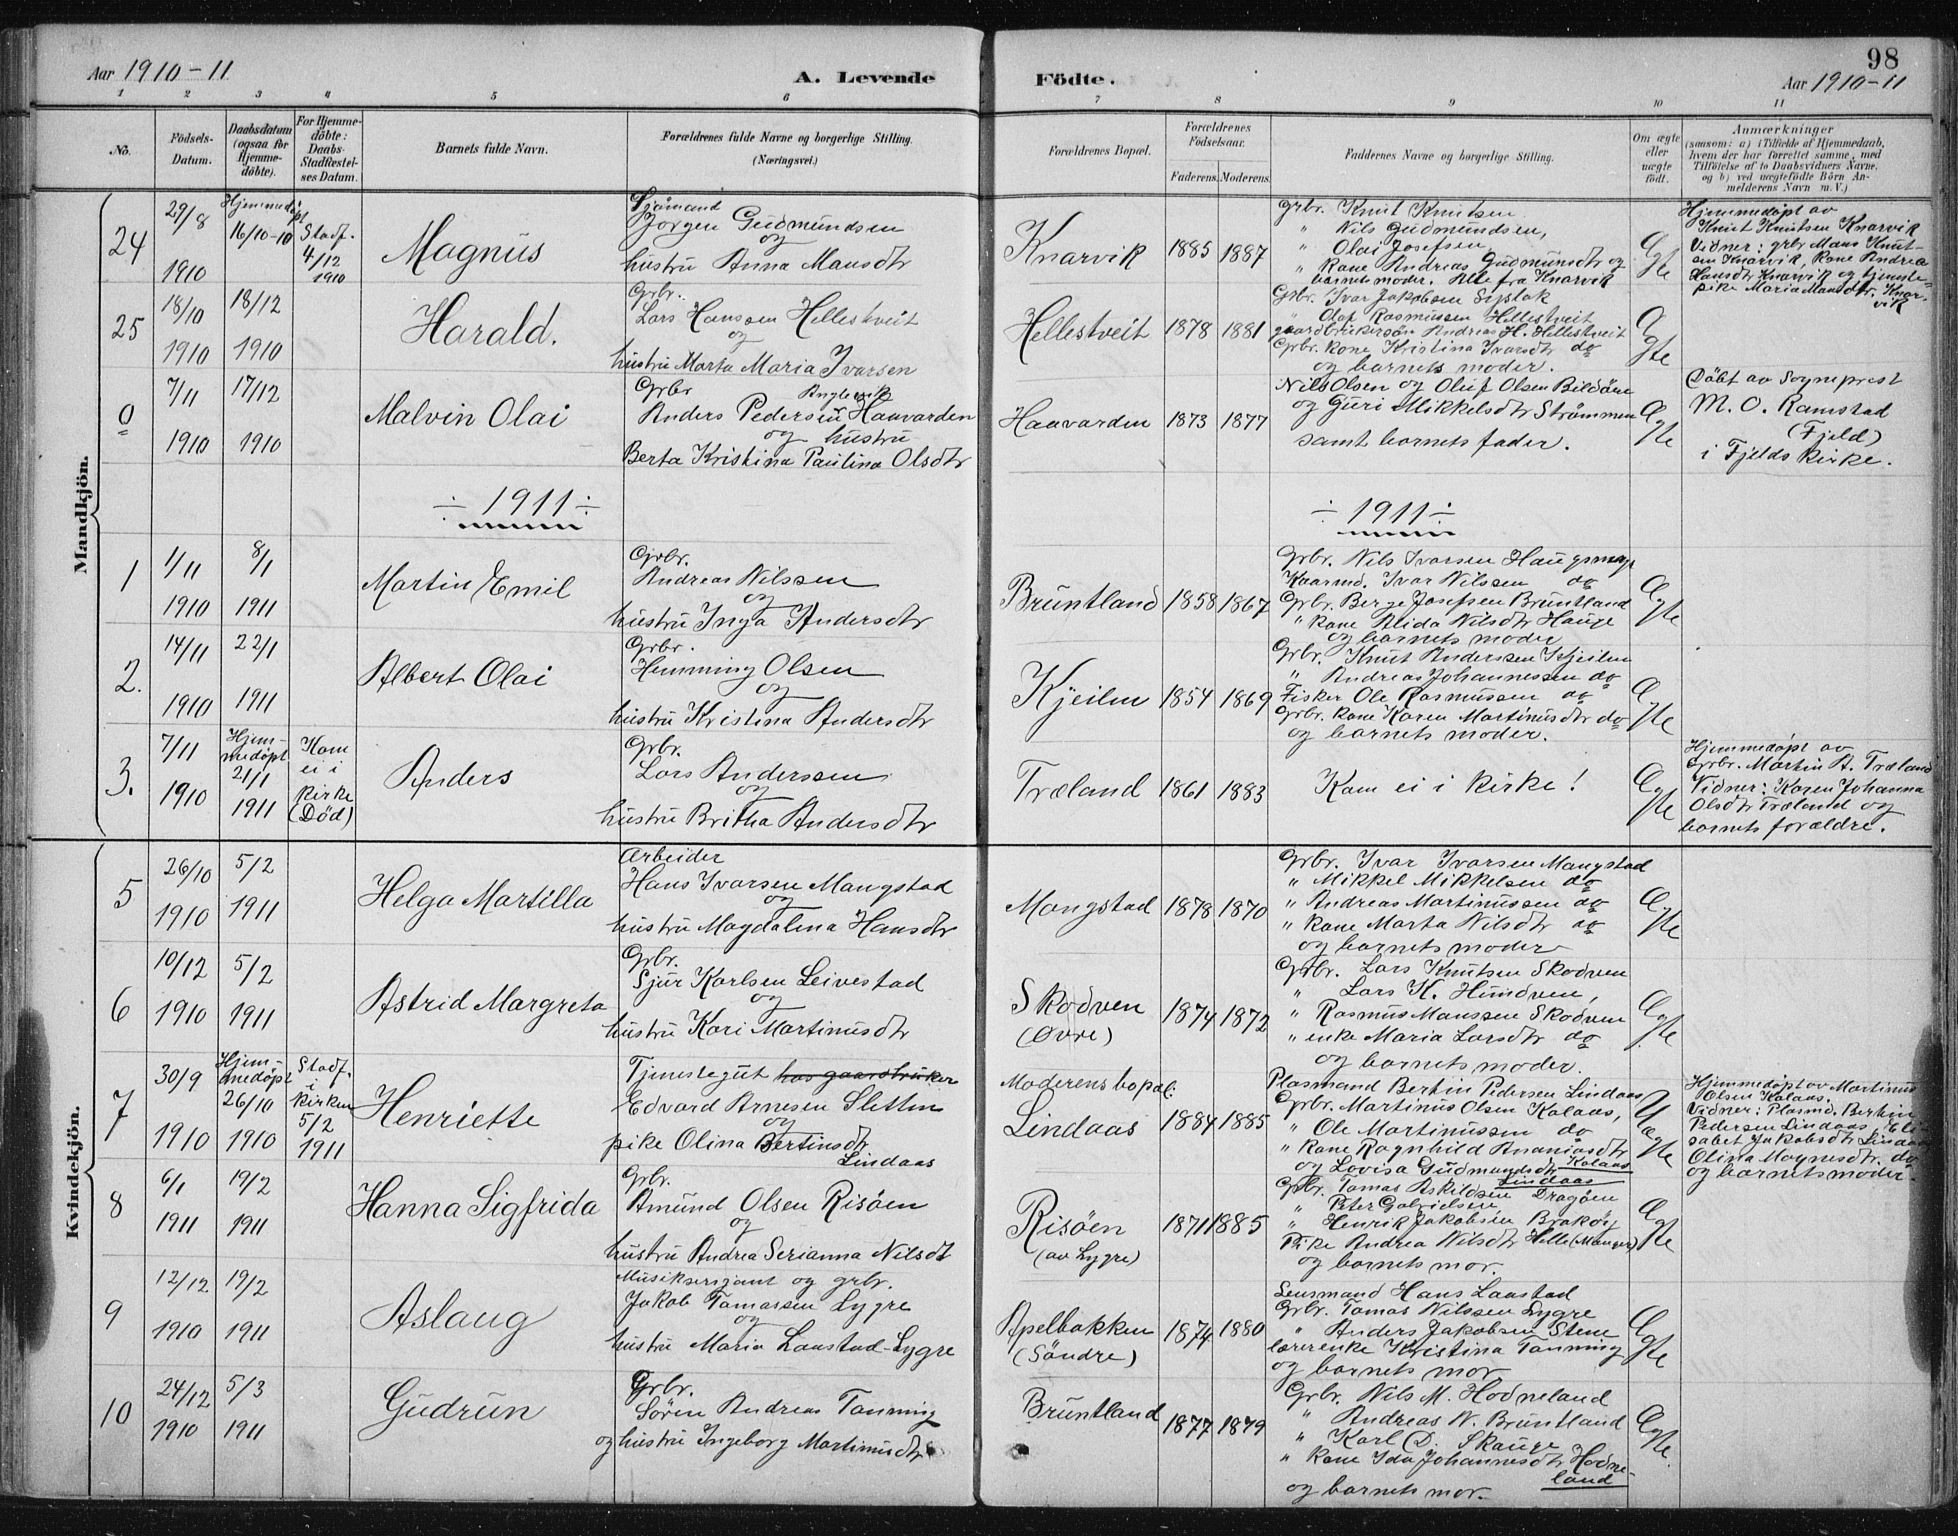 98
Aar 1910-11
A. Levende
Födte.
Aar 1910-11
1 2 3 4 5 6 7 8 9 10 11
No.
Födsels-Datum.
Daabsdatum (ogsaa for Hjemmedöbte).
For Hjemmedöbte: Daabs-Stadfæstelses Datum.
Barnets fulde Navn.
Forældrenes fulde Navne og borgerlige Stilling. (Næringsvei.)
Forældrenes Bopæl.
Forældrenes Födselsaar.
Faderens. Moderens.
Faddernes Navne og borgerlige Stilling.
Om ægte eller uægte födt.
Anmærkninger
(saasom: a) i Tilfælde af Hjemmedaab, hvem der har forrettet samme, med Tilföielse af to Daabsvidners Navne, og b) ved uægtefödte Börn Anmelderens Navn m. V.)
Mandkjön.
24
29/8 1910
Hjemmedöpt 16/10-10
Stadf. 4/12 1910
Magnus
Sjömand
Jörgen Gudmundsen
og
hustru Anna Mansdtr
Knarvik
1885 1887
Grbr. Knut Knutsen
" Nils Gudmundsen,
" Olai Josefsen,
" Kone Andrea Gudmundsdtr og
barnets moder. Alle fra Knarvik
Ægte
Hjemmedöpt av
Knut Knutsen Knarvik
Vidner: grbr Mans Knut-
sen Knarvik, Kone Andrea
Hansdtr Knarvik og tjeneste-
pike Maria Mansdtr. Knar-
vik
25
18/10 1910
18/12 1910
Harald.
Grbr.
Lars Hanssen Hellestveit
og
hustru Marta Maria Ivarsen
Hellestveit
1878 1881
Grbr. Ivar Jakobsen Syslak
" Olaf Rasmussen Hellestveit
gaardbrukersön Andreas H. Hellestveit
Grbr. Kone Kristina Ivarsdtr do
og barnets moder.
Ægte
0
7/11 1910
17/12 1910
Malvin Olai
Grbr Anglevik
Anders Pedersen Haavarden
og hustru
Berta Kristina Paulina Olsdtr
Haavarden
1873 1877
Nils Olsen og Oluf Olsen Bildöne
og Guri Mikkelsdtr Strömmen
samt barnets fader.
Ægte
Döbt av Sogneprest
M. O. Ramstad
(Fjeld)
i Fjelds Kirke.
÷ 1911 ÷
÷ 1911 ÷
1
1/11 1910
8/1 1911
Martin Emil
Grbr.
Andreas Nilssen
og
hustru Inga Andersdtr
Bruntland
1858 1867
Grbr. Nils Ivarsen Haugsmyr
Kaarmd. Ivar Nilssen do
Grbr. Berge Josefsen Bruntland
" Kone Alida Nilsdtr Hauge
og barnets moder
Ægte
2.
14/11 1910
22/1 1911
Albert Olai
Grbr.
Hemming Olsen
og
hustru Kristina Andersdtr
Kjeilen
1854 1869
Grbr. Knut Anderssen Kjeilen
" Andreas Johannessen do
Fisker Ole Rasmussen do
Grbr. Kone Karen Martinusdtr do
og barnets moder.
Ægte
3.
7/11 1910
Hjemmedöpt 21/1 1911
Kom ei i Kirke (Död)
Anders
Grbr.
Lars Anderssen
og
hustru Britha Andersdtr
Træland
1861 1883
Kom ei i Kirke!
Ægte
Hjemmedöpt av
Grbr. Martin A. Træland
Vidner: Karen Johanna
Olsdtr Træland og
barnets forældre.
Kvindekjön.
5
26/10 1910
5/2 1911
Helga Martilla
Arbeider
Hans Ivarsen Mangstad
og
hustru Magdalena Hansdtr
Mangstad
1878 1870
Grbr. Ivar Ivarsen Mangstad
" Mikkel Mikkelsen do
" Andreas Martinussen do
" Kone Marta Nilsdtr do
og barnets moder
Ægte
6
10/12 1910
5/2 1911
Astrid Margreta
Grbr.
Sjur Karlsen Leivestad
og
hustru Kari Martinusdtr
Skodven
(Övre)
1874 1872
Grbr. Lars Knutsen Skodven
" Lars K. Hundven,
" Rasmus Manssen Skodven
" enke Maria Larsdtr do
og barnets moder.
Ægte
7
30/9 1910
Hjemmedöpt 26/10 1910
Stadf. i Kirken 5/2 1911
Henriette
Tjenestegut hos gaardbruker
Edvard Arnesen Sletten
og
pike Olina Bertinsdtr
Lindaas
Moderens bopæl:
Lindaas
1884 1885
Plasmand Bertin Pedersen Lindaas
Grbr. Martinus Olsen Kalaas,
" Ole Martinussen do
" Kone Ragnhild Ananiasdtr
og Lovisa Gudmundsdtr Kalaas
Lindaas
Uægte
Hjemmedöpt av Martinus
Olsen Kalaas.
Vidner: Plasmd. Bertin
Pedersen Lindaas, Eli-
sabet Jakobsdtr Lindaas
Olina Magnesdtr. do
og barnets moder.
8
6/1 1911
19/2 1911
Hanna Sigfrida
Grbr.
Amund Olsen Risöen
og
hustru Andrea Serianna Nilsdt
Risöen
(av Lygre)
1871 1885
Grbr. Tomas Askildsen Dragöen
" Peter Gabrielsen
" Henrik Jakobsen Braköy
Pike Andrea Nilsdtr Helle (Manger)
og barnets mor.
Ægte
9
12/12 1910
19/2 1911
Aslaug
Musiksersjant og grbr.
Jakob Tomassen Lygre
og
hustru Maria Laastad Lygre
Apelbakken
(Söndre)
1874 1880
Lensmand Hans Laastad
Grbr. Tomas Nilssen Lygre
" Anders Jakobsen Stene
lærerenke Kristina Tanning
og barnets mor
Ægte
10
24/12 1910
5/3 1911
Gudrun
Grbr.
Sören Andreas Tanning
og hustru Ingeborg Martinusdtr
Bruntland
1877 1879
Grbr. Nils M. Hodneland
" Andreas N. Bruntland
" Karl D. Skauge
" Kone Ida Johannesdtr Hodne-
land
og barnets mor.
Ægte.